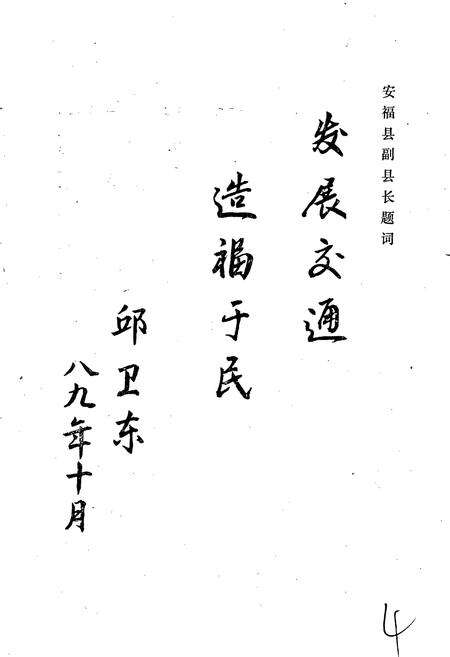 安福县副县长题词
发展交通
造福于民
邱卫东
八九年十月
4